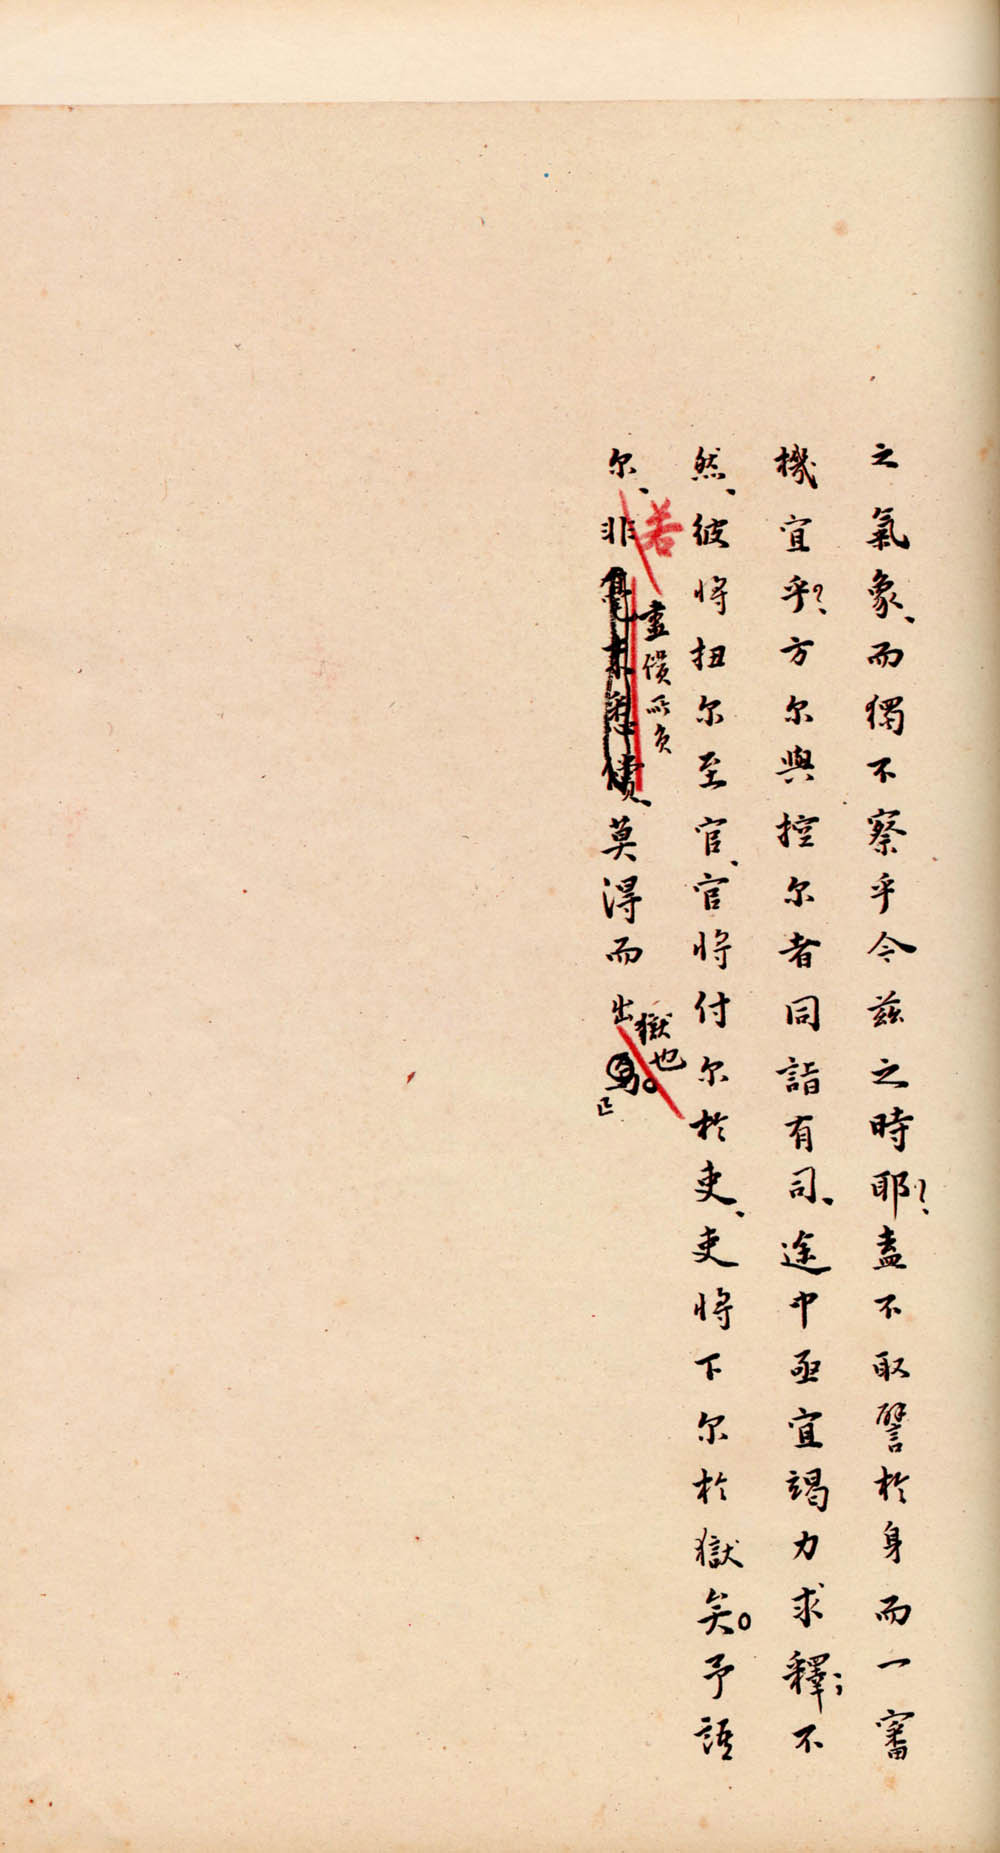 之氣象、而獨不察乎今茲之時耶?、盍不取譬於身而一審
機宜乎?、方尔與控尔者同詣有司、途中亟宜竭力求釋;不
然、彼將扭尔至官、官將付尔於吏、吏將下尔於獄矣。予語
若
盡償所負
獄也。
尔、非償、莫得而出